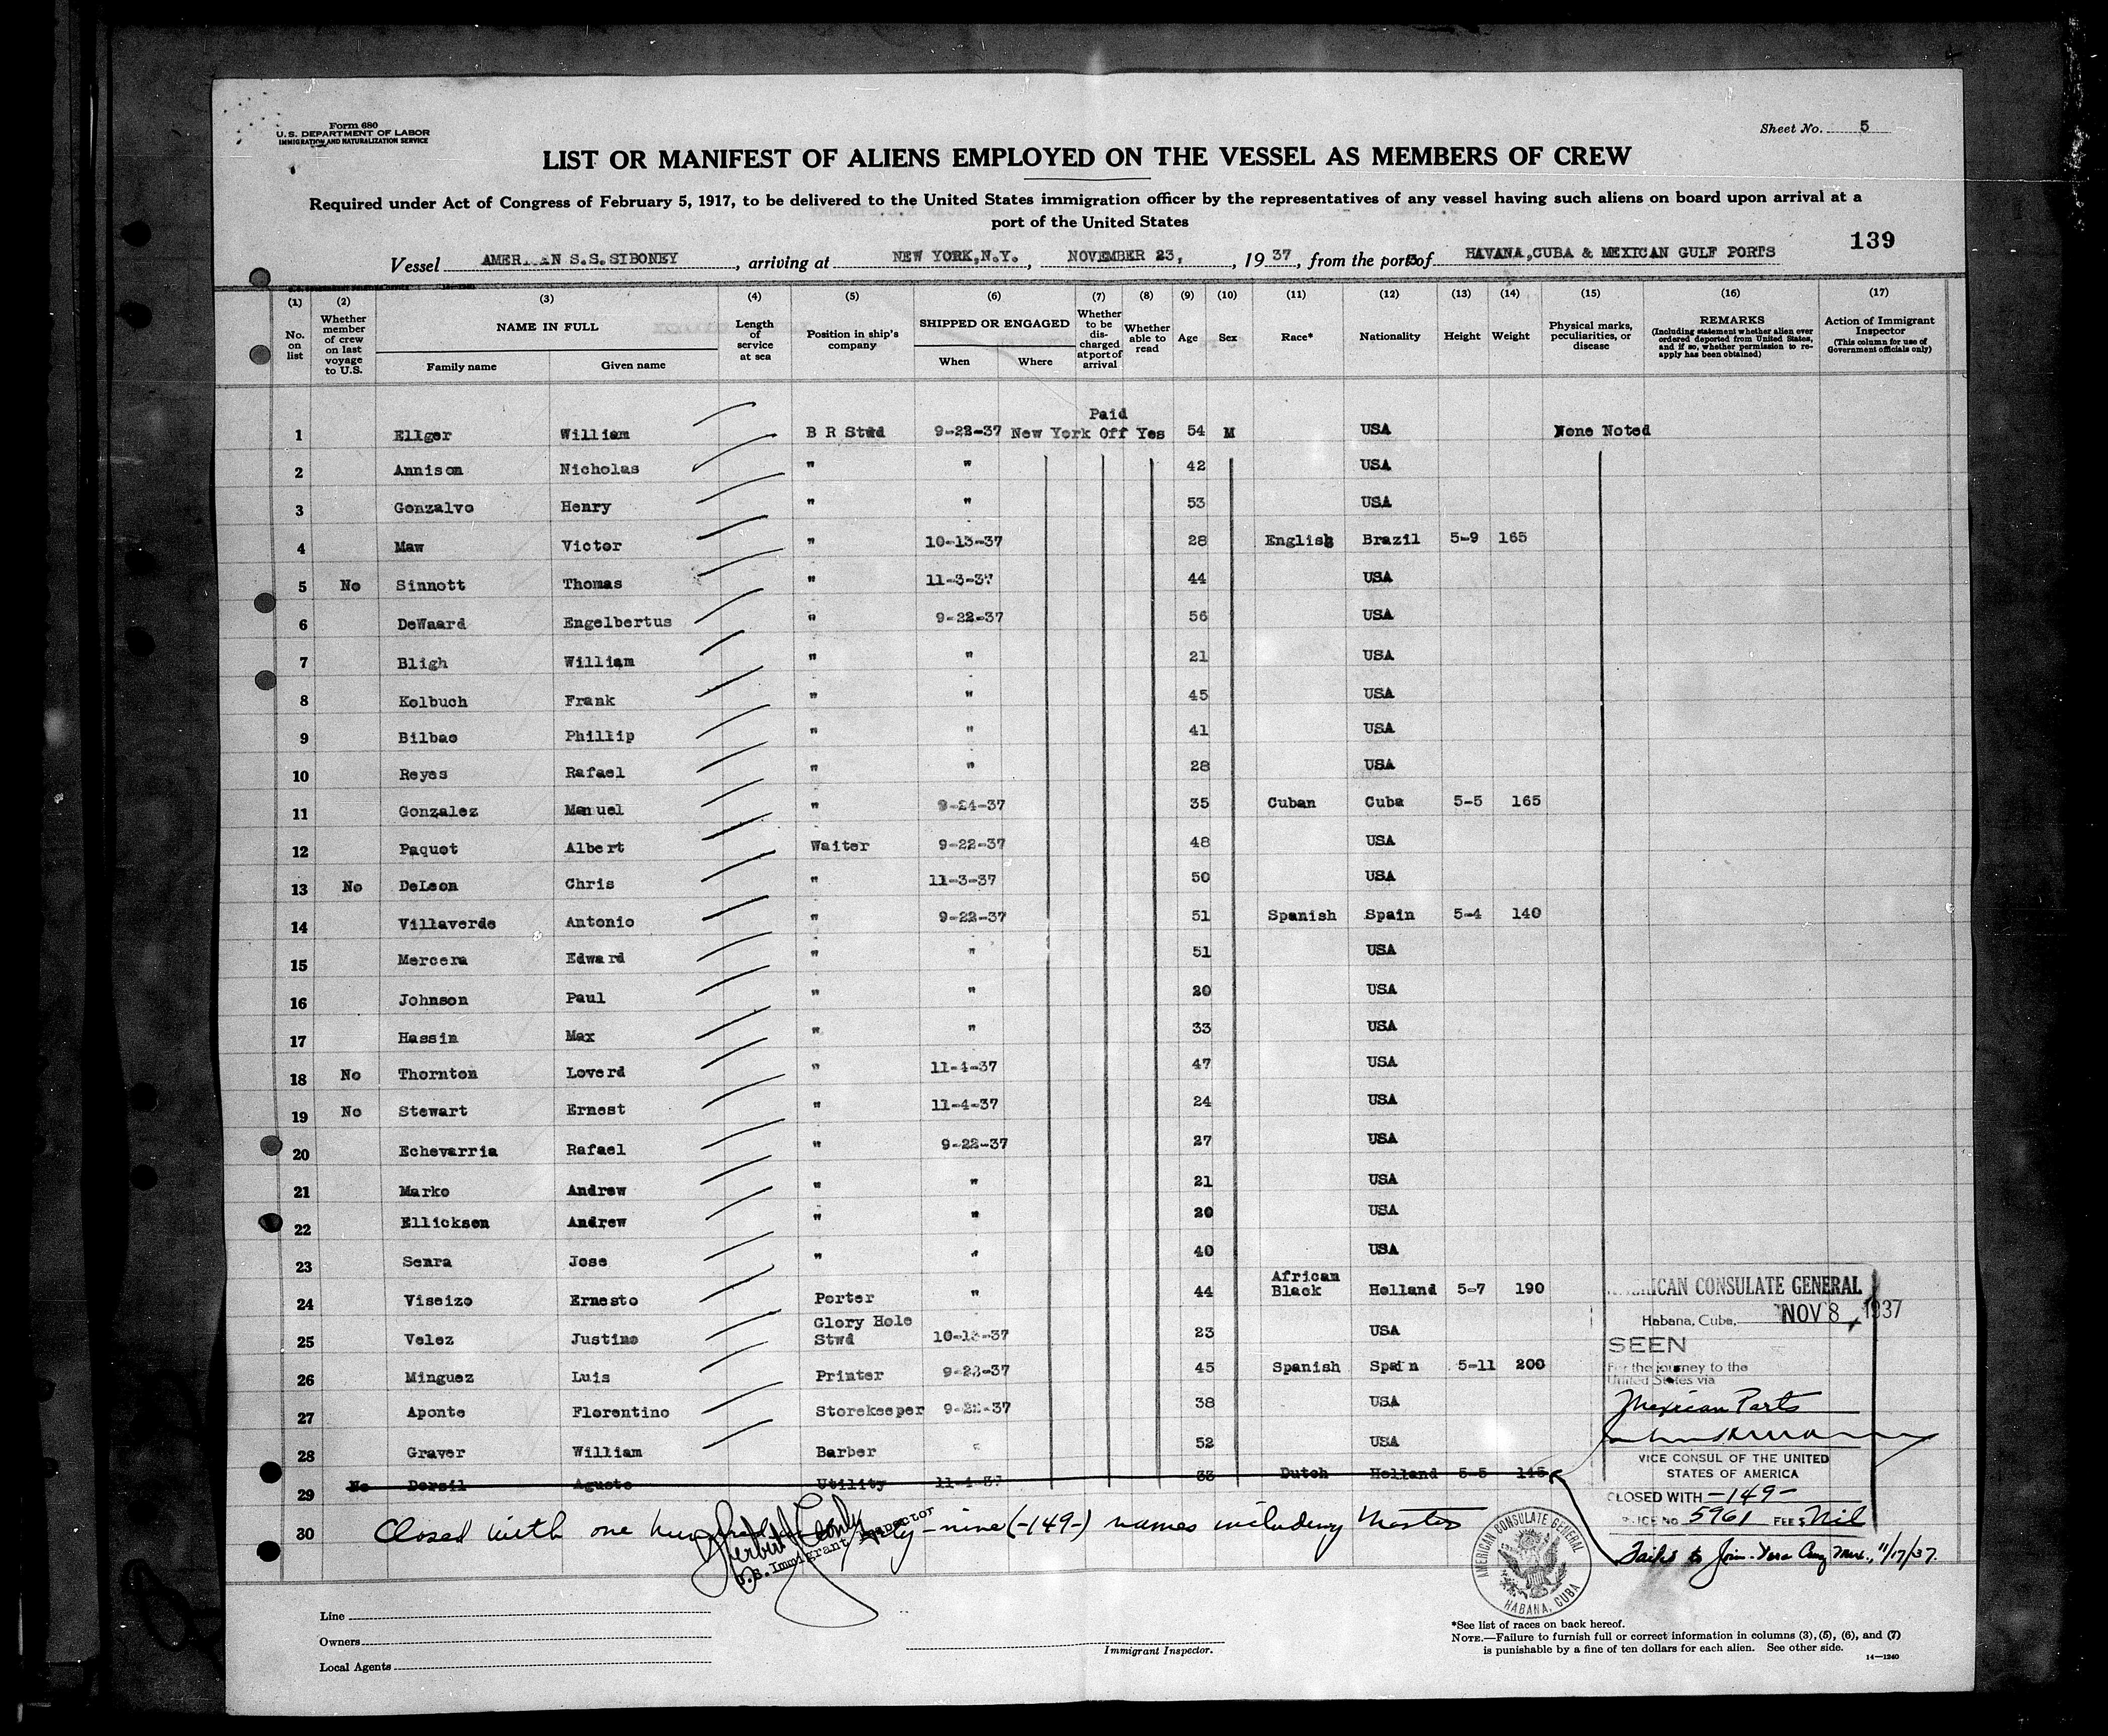 Form 680
U.S. DEPARTMENT OF LABOR
IMMIGRATION AND NATURALIZATION SERVICE
Sheet No. 5
LIST OR MANIFEST OF ALIENS EMPLOYED ON THE VESSEL AS MEMBERS OF CREW
Required under Act of Congress of February 5, 1917, to be delivered to the United States immigration officer by the representatives of any vessel having such aliens on board upon arrival at a
port of the United States
139
Vessel AMERICAN S.S. SIBONEY, arriving at NEW YORK, N.Y., NOVEMBER 23, 1937, from the ports of HAVANA, CUBA & MEXICAN GULF PORTS
(1) (2) (3) (4) (5) (6) (7) (8) (9) (10) (11) (12) (13) (14) (15) (16) (17)
No. on list
Whether member of crew on last voyage to U.S.
NAME IN FULL
Family name
Given name
Length of service at sea
Position in ship's company
SHIPPED OR ENGAGED
When
Where
Whether to be discharged at port of arrival
Whether able to read
Age
Sex
Race*
Nationality
Height
Weight
Physical marks, peculiarities, or disease
REMARKS
(Including statement whether alien ever ordered deported from United States, and if so, whether permission to reapply has been obtained)
Action of Immigrant Inspector
(This column for use of Government officials only)
Paid
1 Ellger William B R Stwd 9-22-37 New York Off Yes 54 M USA None Noted
2 Annison Nicholas " " 42 USA
3 Gonzalvo Henry " " 53 USA
4 Maw Victor " 10-13-37 28 English Brazil 5-9 165
5 No Sinnott Thomas " 11-3-37 44 USA
6 DeWaard Engelbertus " 9-22-37 56 USA
7 Bligh William " " 21 USA
8 Kolbuch Frank " " 45 USA
9 Bilbao Phillip " " 41 USA
10 Reyes Rafael " " 28 USA
11 Gonzalez Manuel " 9-24-37 35 Cuban Cuba 5-5 165
12 Paquot Albert Waiter 9-22-37 48 USA
13 No DeLeon Chris " 11-3-37 50 USA
14 Villaverde Antonio " 9-22-37 51 Spanish Spain 5-4 140
15 Mercera Edward " " 51 USA
16 Johnson Paul " " 20 USA
17 Hassin Max " " 33 USA
18 No Thornton Loverd " 11-4-37 47 USA
19 No Stewart Ernest " 11-4-37 24 USA
20 Echevarria Rafael " 9-22-37 27 USA
21 Marko Andrew " " 21 USA
22 Ellickson Andrew " " 20 USA
23 Senra Jose " " 40 USA
24 Viseizo Ernesto Porter " 44 African Black Holland 5-7 190
25 Velez Justino Glory Hole Stwd 10-13-37 23 USA
26 Minguez Luis Printer 9-22-37 45 Spanish Spain 5-11 200
27 Aponte Florentino Storekeeper 9-22-37 38 USA
28 Graver William Barber " 52 USA
29 No Dersil Aguste Utility 11-4-37 33 Dutch Holland 5-5 145
30 Closed with one hundred forty-nine (-149-) names including Master
U.S. Immigrant Inspector
AMERICAN CONSULATE GENERAL
Habana, Cuba, NOV 8, 1937
SEEN
For the journey to the
United States via
Mexican Ports
VICE CONSUL OF THE UNITED
STATES OF AMERICA
CLOSED WITH -149-
SERVICE NO 5961 FEE $ Nil
Failed to Join - Vera Cruz Mex., 11/17/37.
AMERICAN CONSULATE GENERAL
HABANA, CUBA
Line
Owners
Local Agents
Immigrant Inspector.
*See list of races on back hereof.
NOTE.—Failure to furnish full or correct information in columns (3), (5), (6), and (7)
is punishable by a fine of ten dollars for each alien. See other side.
14—1240